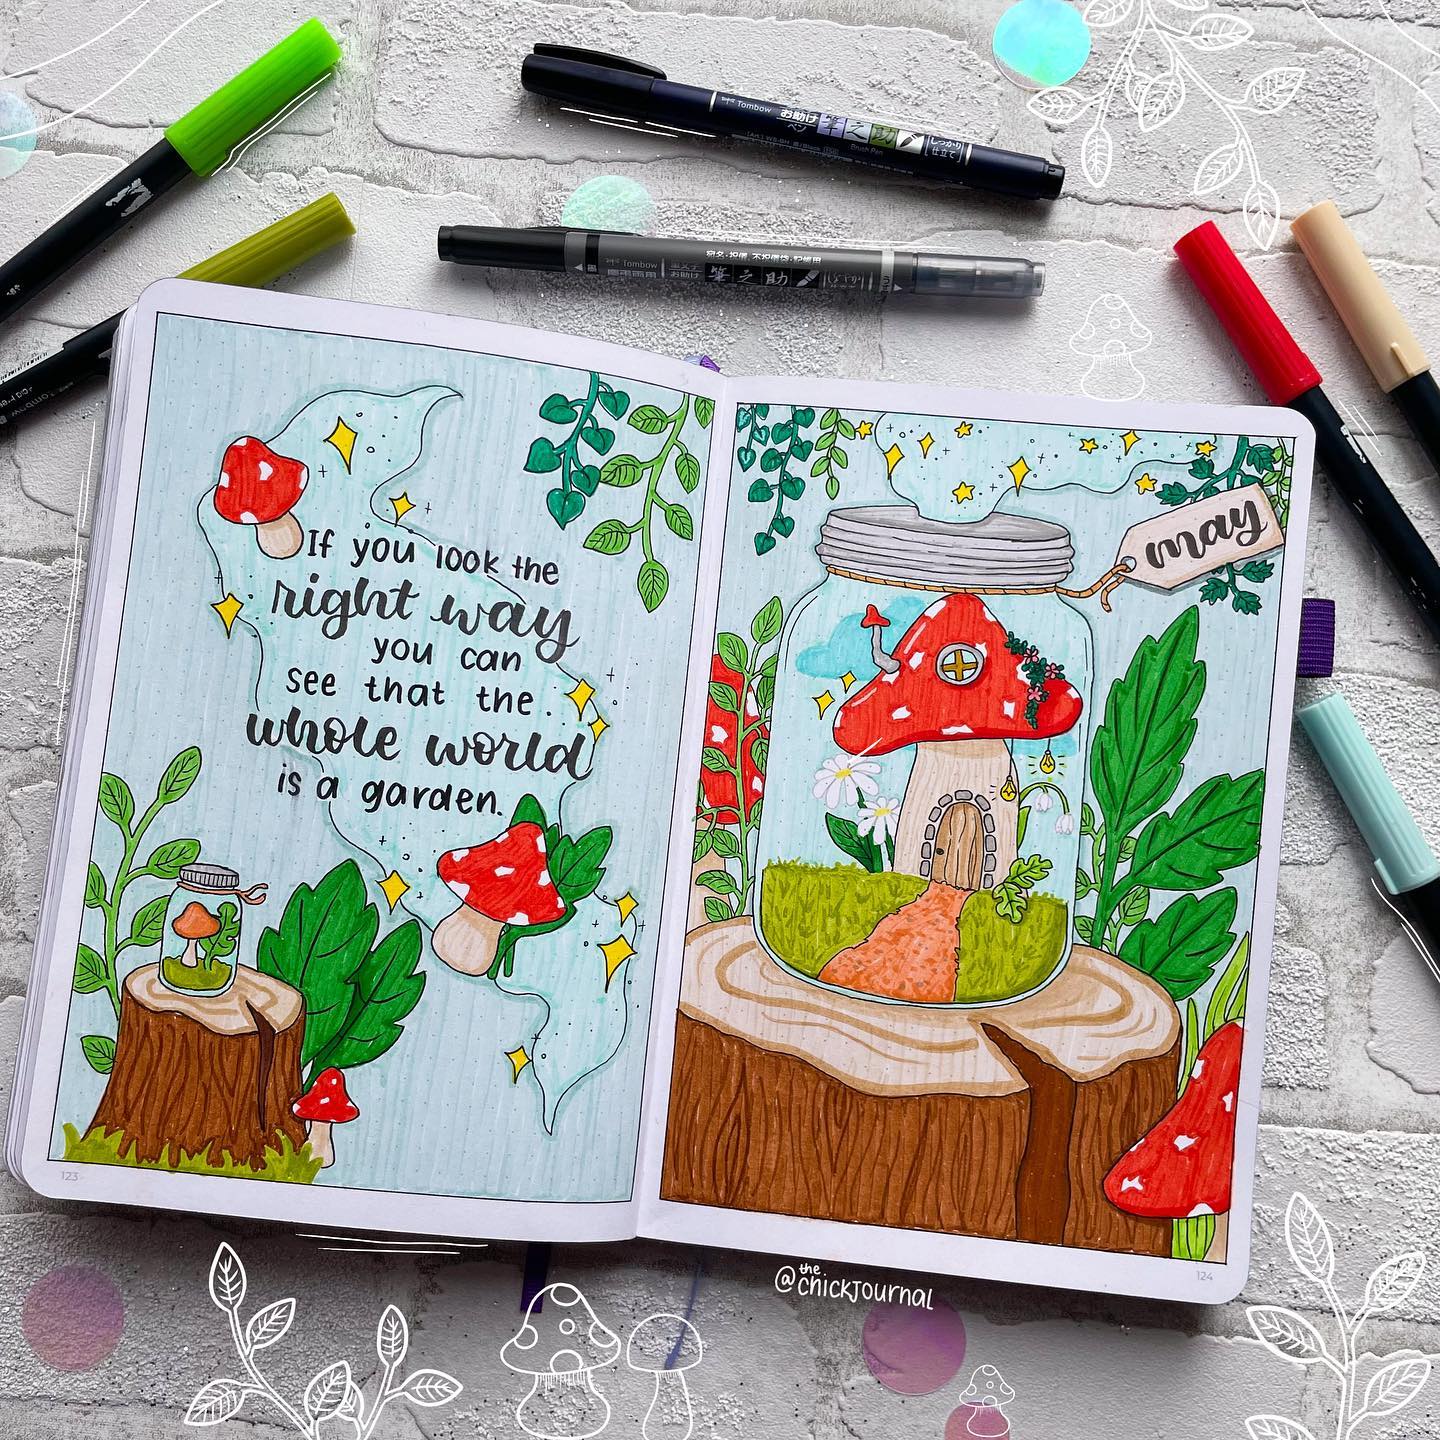 Tombow
お助け
ペン
筆之助
しっかり
仕立て
Brush Pen
宛名・祝儀 不祝儀袋・記帳用
Tombow
お助け
筆之助
しなやか
If you look the
right way
you can
see that the
whole world
is a garden.
may
123
124
@the.chickjournal